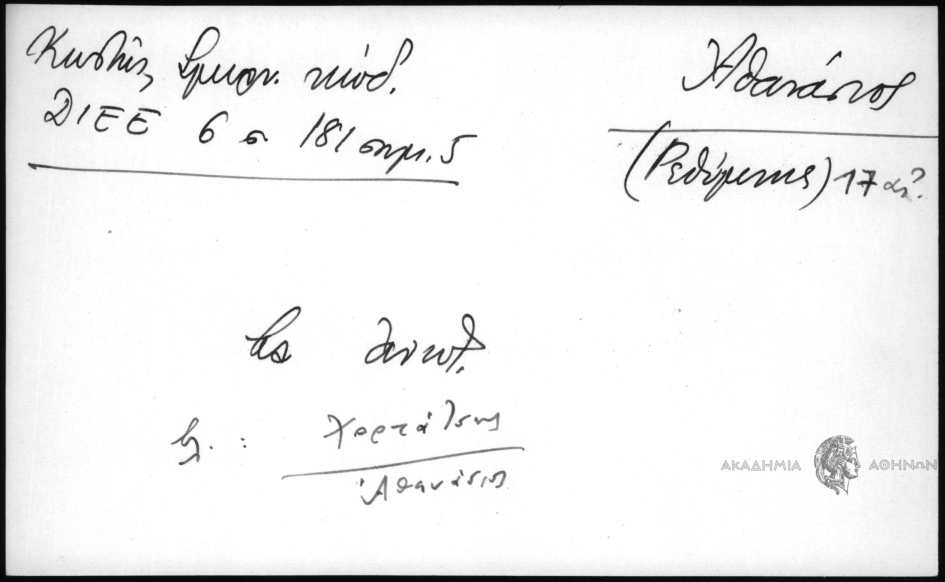 Κωδής, Σμυρν. κώδ.
ΔΙΕΕ 6 σ 181 σημ. 5
Ἀθανάσιος
(Ρεθύμνης) 17 αἰ?
βλ. :
Χορτάτσης
Ἀθανάσιος
ΑΚΑΔΗΜΙΑ ΑΘΗΝΩΝ